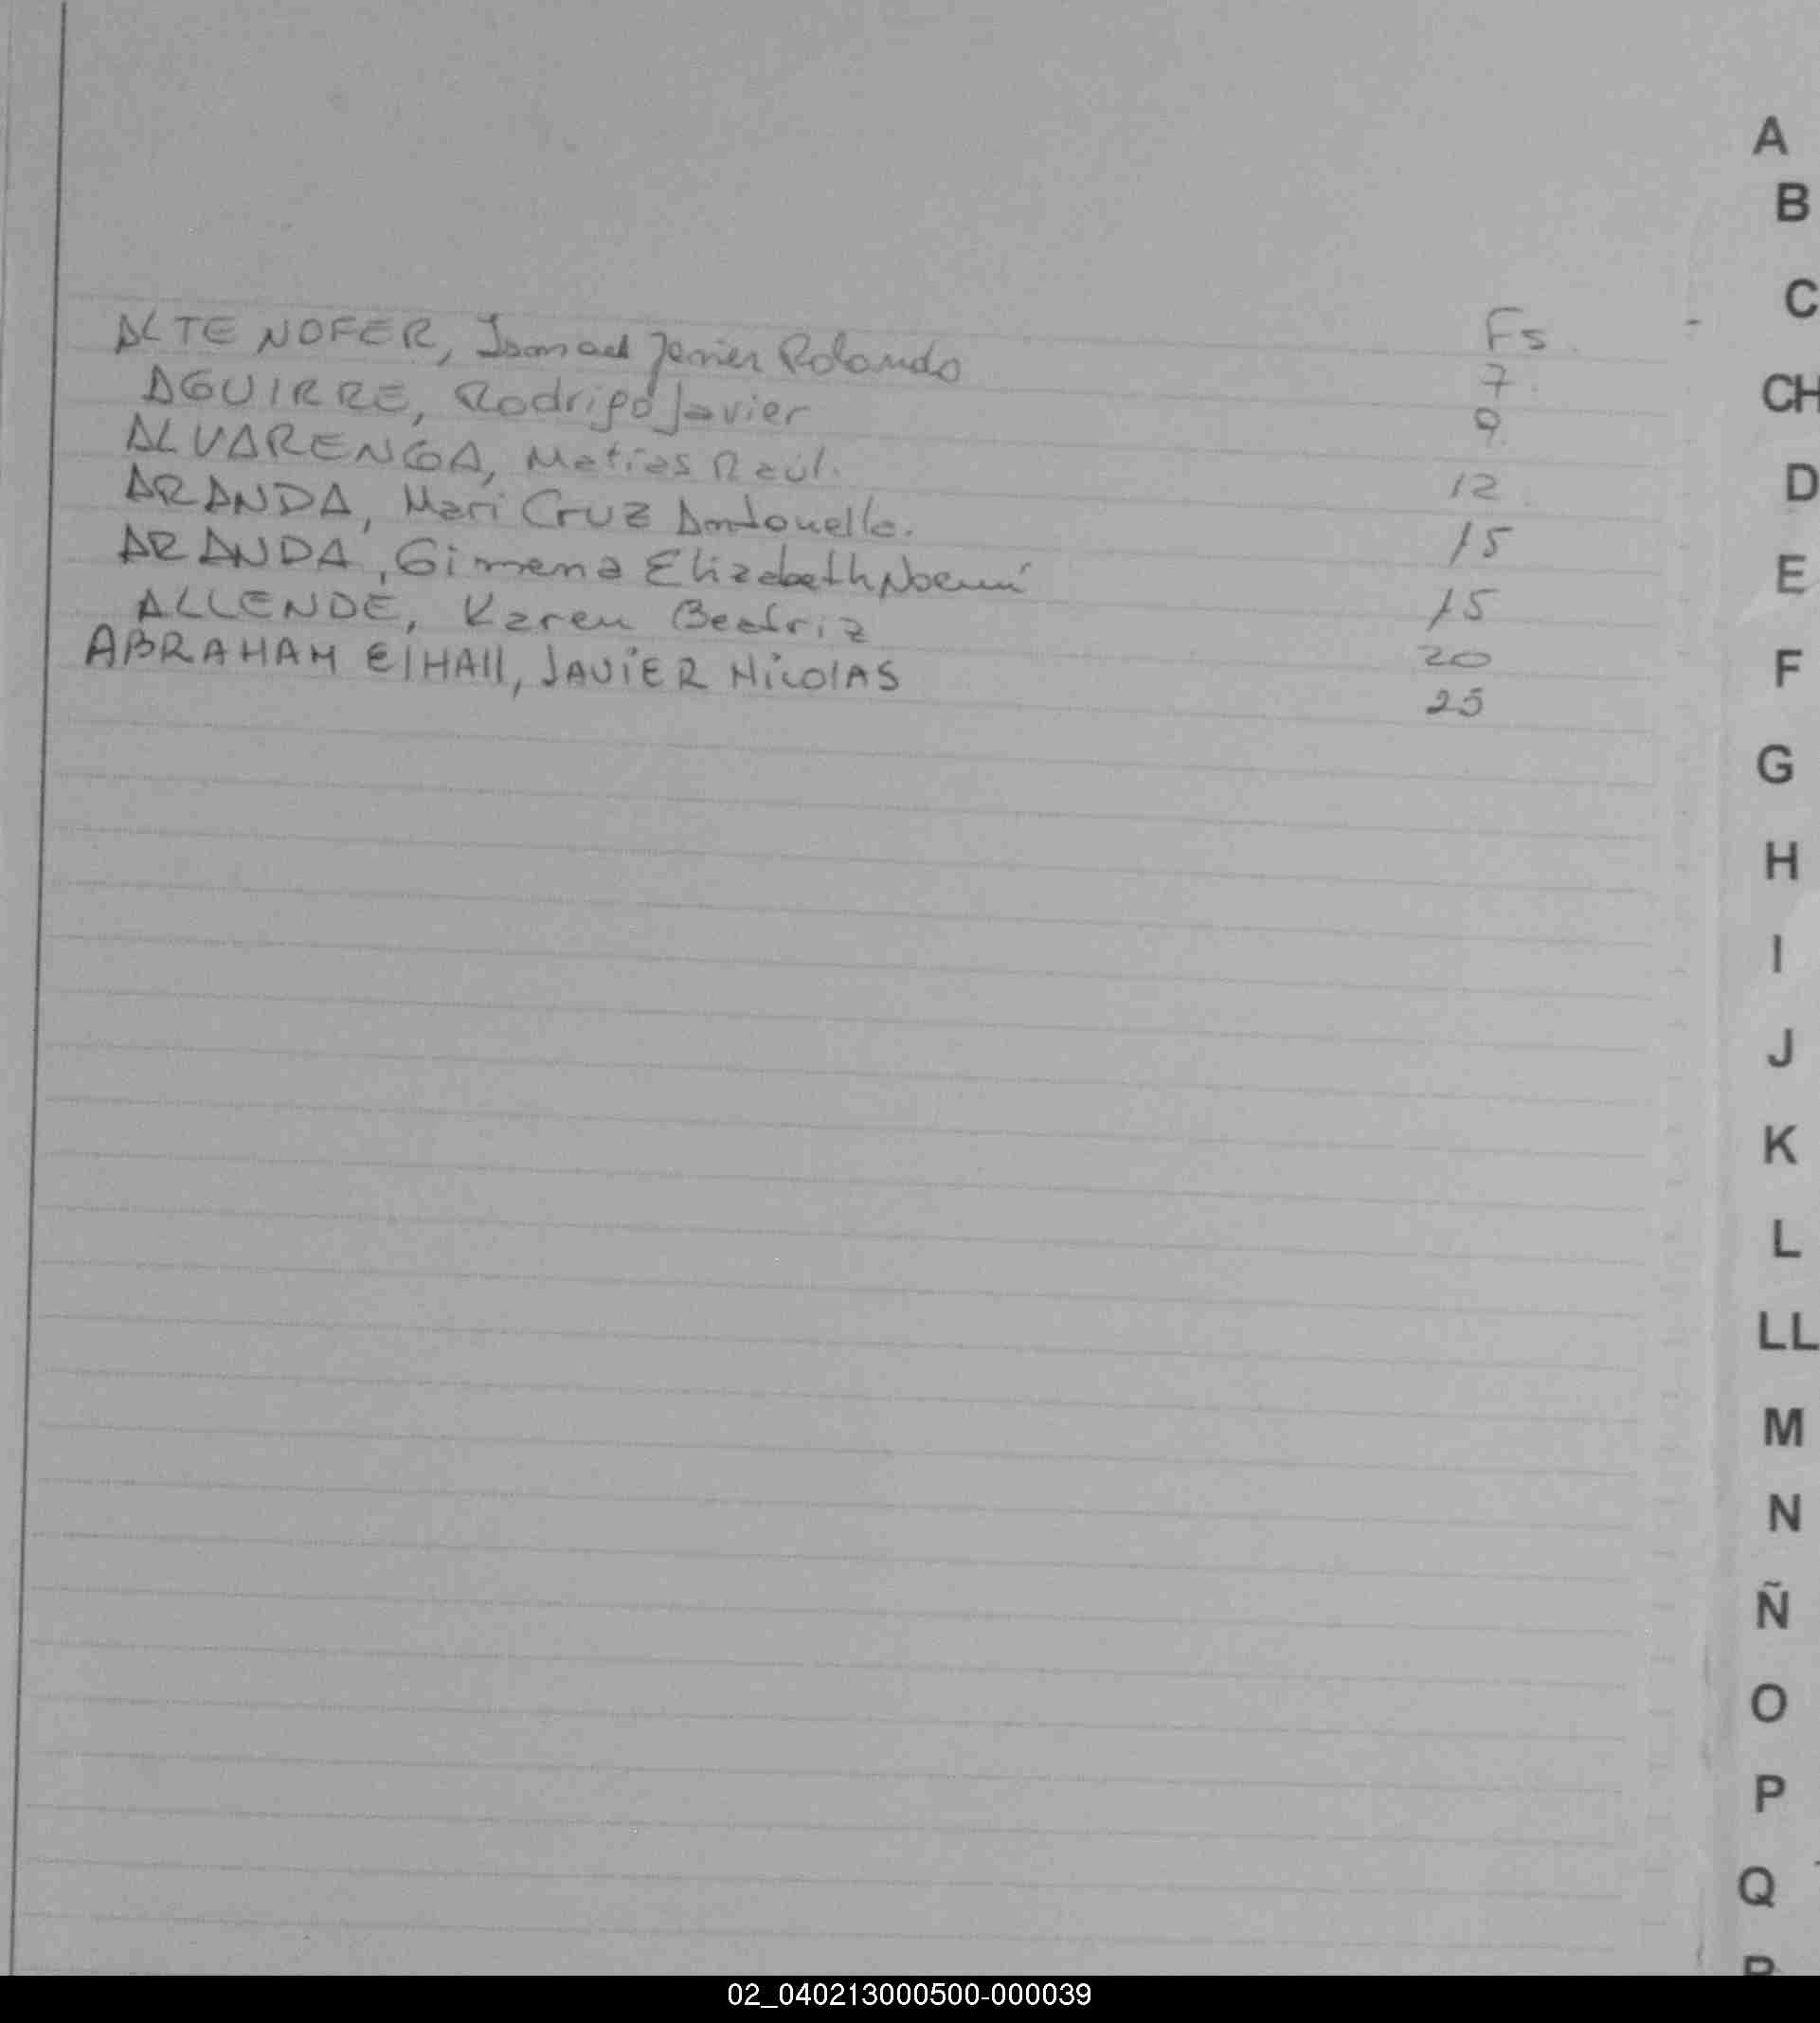 Fs.
ALTE NOFER, Ismael Javier Rolando 7
AGUIRRE, Rodrigo Javier 9
ALVARENGA, Matias Raúl. 12
ARANDA, Mari Cruz Antonella. 15
ARANDA, Gimena Elizabeth Noemí 15
ALLENDE, Karen Beatriz 20
ABRAHAM ElHAll, JAViER NicolAS 25
A
B
C
CH
D
E
F
G
H
I
J
K
L
LL
M
N
Ñ
O
P
Q
02_040213000500-000039